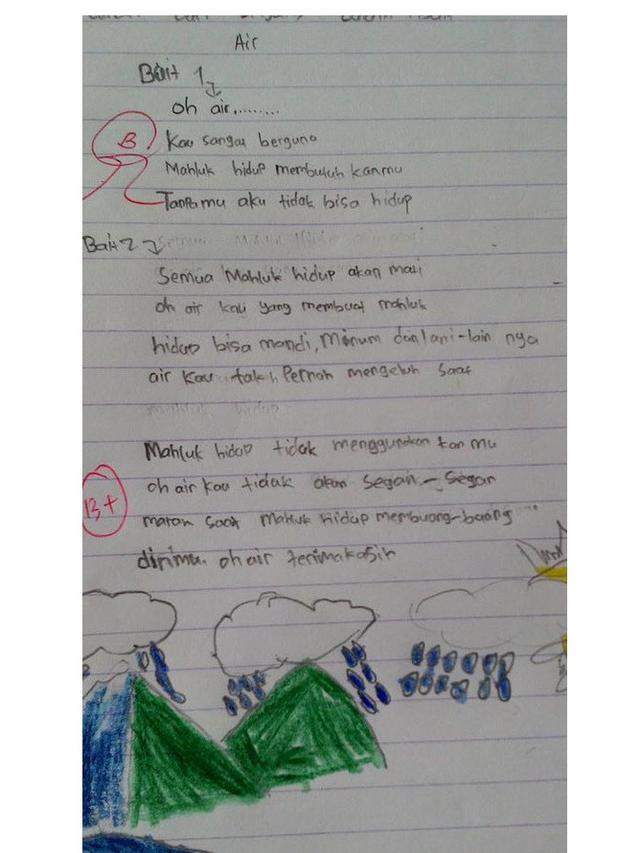 Air
Bait 1
oh air.........
B
Kau sangat berguna
Mahluk hidup membutuh kanmu
Tanpamu aku tidak bisa hidup
Bait 2
Semua Mahluk hidup akan mati
oh air kau yang membuat mahluk
hidup bisa mandi, Minum dan lani-lain nya
air kau tak Pernah mengeluh saat
Mahluk hidup tidak menggunakan kan mu
B+
oh air kau tidak akan Segan - Segan
maran saat mahluk hidup membuang-buang
dirimu. oh air terimakasih